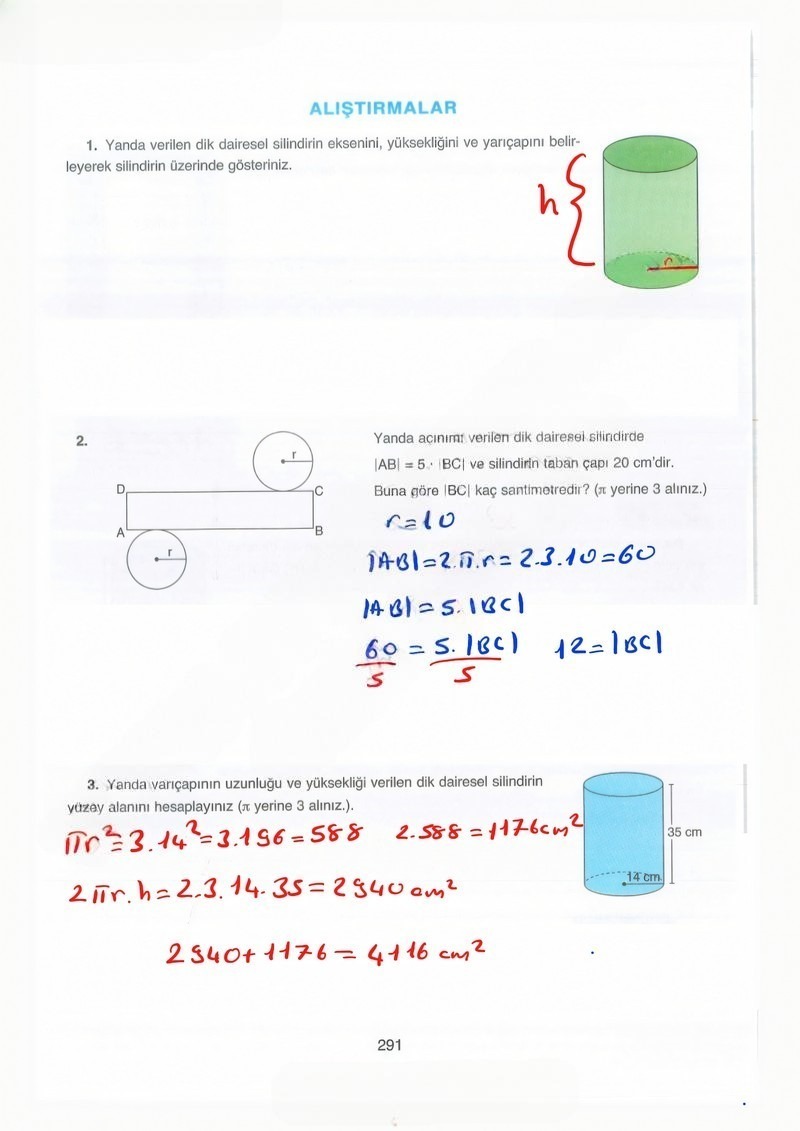 ALIŞTIRMALAR
1. Yanda verilen dik dairesel silindirin eksenini, yüksekliğini ve yarıçapını belir-
leyerek silindirin üzerinde gösteriniz.
h
r
2.
Yanda açınımı verilen dik dairesel silindirde
|AB| = 5 · |BC| ve silindirin taban çapı 20 cm'dir.
Buna göre |BC| kaç santimetredir? (π yerine 3 alınız.)
r
D
C
A
B
r
r=10
|AB|=2.π.r=2.3.10=60
|AB|=5.|BC|
60/5 = 5.|BC|/5 12=|BC|
3. Yanda yarıçapının uzunluğu ve yüksekliği verilen dik dairesel silindirin
yüzey alanını hesaplayınız (π yerine 3 alınız.).
35 cm
14 cm
πr²=3.14²=3.196=588 2.588=1176cm²
2πr.h=2.3.14.35=2940cm²
2940+1176=4116 cm²
291